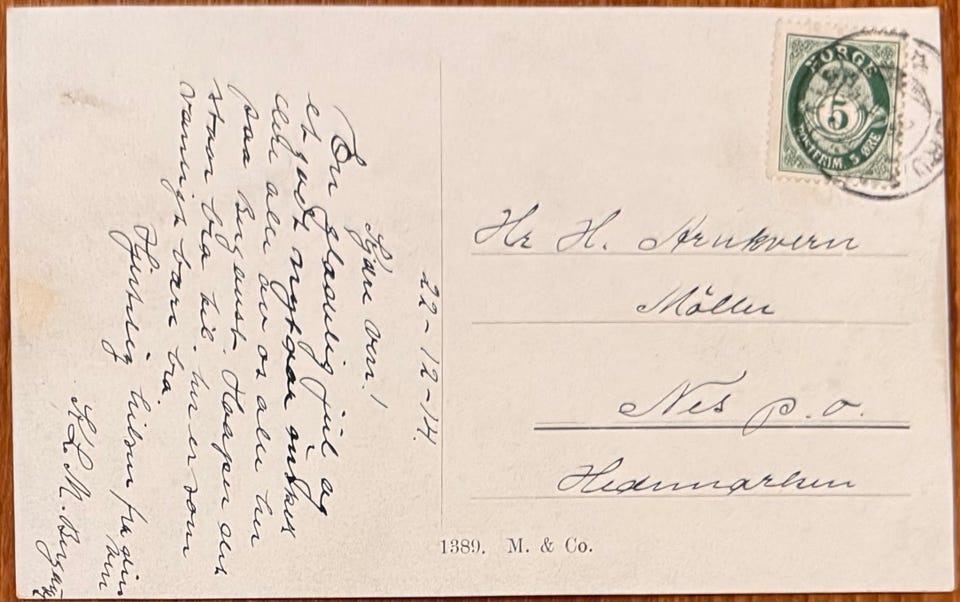 22-12-14.
Kjære ven!
En glædelig jul og
et godt nytaar ønskes
dere alle av os alle her
paa Bugeust. Haaper det
staar bra til. her er som
vanligt bare bra.
Hjertelig hilsen fra din
ven
K. L. M.
NORGE
5
POSTFRIM. 5 ØRE
Hr H. Arnkvern
Möller
Nes p.o.
Hedemarken
1389. M. & Co.